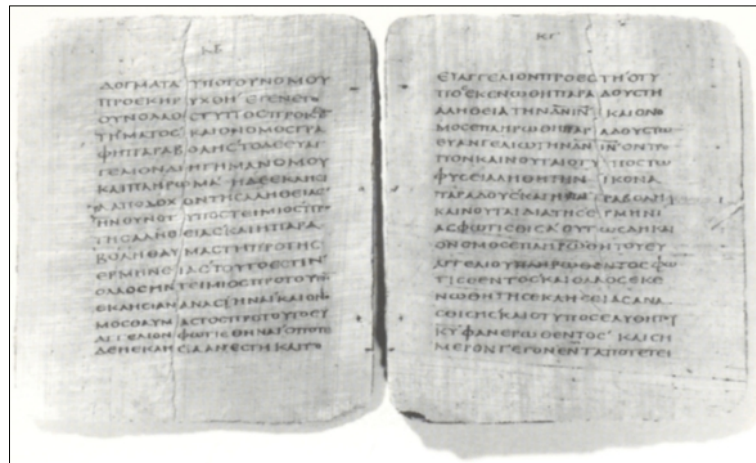 ΚΒ
ΔΟΓΜΑΤΑ ΥΠΟΤΟΥΝΟΜΟΥ
ΠΡΟΕΚΗΡΥΧΘΗ ΕΓΕΝΕΤΟ
ΟΥΝΟΛΑΟϹΤΥΠΟϹΠΡΟΚΕ
ΤΗΜΑΤΟϹ ΚΑΙΟΝΟΜΟϹΓΡΑ
ΦΗΠΑΡΑΒΟΛΗϹΤΟΔΕΕΥΑΓ
ΓΕΛΙΟΝΔΙΗΓΗΜΑΝΟΜΟΥ
ΚΑΙΠΛΗΡΩΜΑ ΗΔΕΕΚΛΗϹΙ
ΑΑΠΟΔΟΧΟΝΤΗϹΑΛΗΘΕΙΑϹ
ΗΝΟΥΝΟΤΥΠΟϹΤΕΙΜΙΟϹΠΡΟ
ΤΗϹΑΛΗΘΕΙΑϹΚΑΙΗΠΑΡΑ
ΒΟΛΗΘΑΥΜΑϹΤΗΠΡΟΤΗϹ
ΕΡΜΗΝΕΙΑϹΤΟΥΤΟΕϹΤΙΝ
ΟΛΑΟϹΗΝΤΕΙΜΙΟϹΠΡΟΤΟΥΤΗ̅
ΕΚΛΗϹΙΑΝΑΝΑϹΤΗΝΑΙΚΑΙΟΝΟ
ΜΟϹΘΑΥΝΑϹΤΟϹΠΡΟΤΟΥΤΟΕΥ
ΑΓΓΕΛΙΟΝΦΩΤΙϹΘΗΝΑΙΟΠΟΤΕ
ΔΕΗΕΚΛΗϹΙΑΑΝΕϹΤΗΚΑΙΤΟ
ΚΓ
ΕΥΑΓΓΕΛΙΟΝΠΡΟΕϹΤΗΟΤΥ
ΠΟϹΕΚΕΝΩΘΗΠΑΡΑΔΟΥϹΤΗ
ΑΛΗΘΕΙΑΤΗΝΔΥΝΑΜΙΝ ΚΑΙΟΝΟ
ΜΟϹΕΠΛΗΡΩΘΗΠΑΡΑΔΟΥϹΤΩ
ΕΥΑΓΓΕΛΙΩΤΗΝΔΥΝΑΜΙΝ ΟΝΤΡΟ
ΠΟΝΚΕΝΟΥΤΑΙΟΤΥΠΟϹΤΩ
ΦΥϹΕΙΑΛΗΘΗΤΗΝ ΙΚΟΝΑ
ΠΑΡΑΔΟΥϹΚΑΙΗΠΑΡΑΒΟΛΗ
ΚΑΙΝΟΥΤΑΙΔΙΑΤΗϹΕΡΜΗΝΙ
ΑϹΦΩΤΙϹΘΙϹΑ ΟΥΤΩϹΔΗΚΑΙ
ΟΝΟΜΟϹΕΠΛΗΡΩΘΗΤΟΥΕΥ
ΑΓΓΕΛΙΟΥ
ΤΙϹΘΕΝΤΟϹΚΑΙΟΛΑΟϹΕΚΕ
ΝΩΘΗΤΗϹΕΚΛΗϹΕΙΑϹΑΝΑ
ϹΘΕΙϹΗϹΚΑΙΟΤΥΠΟϹΕΛΥΘΗΤΟΥ
ΚΥ ΦΑΝΕΡΩΘΕΝΤΟϹ ΚΑΙϹΗ
ΜΕΡΟΝΓΕΓΟΝΕΝΤΑΠΟΤΕΤΕΙ